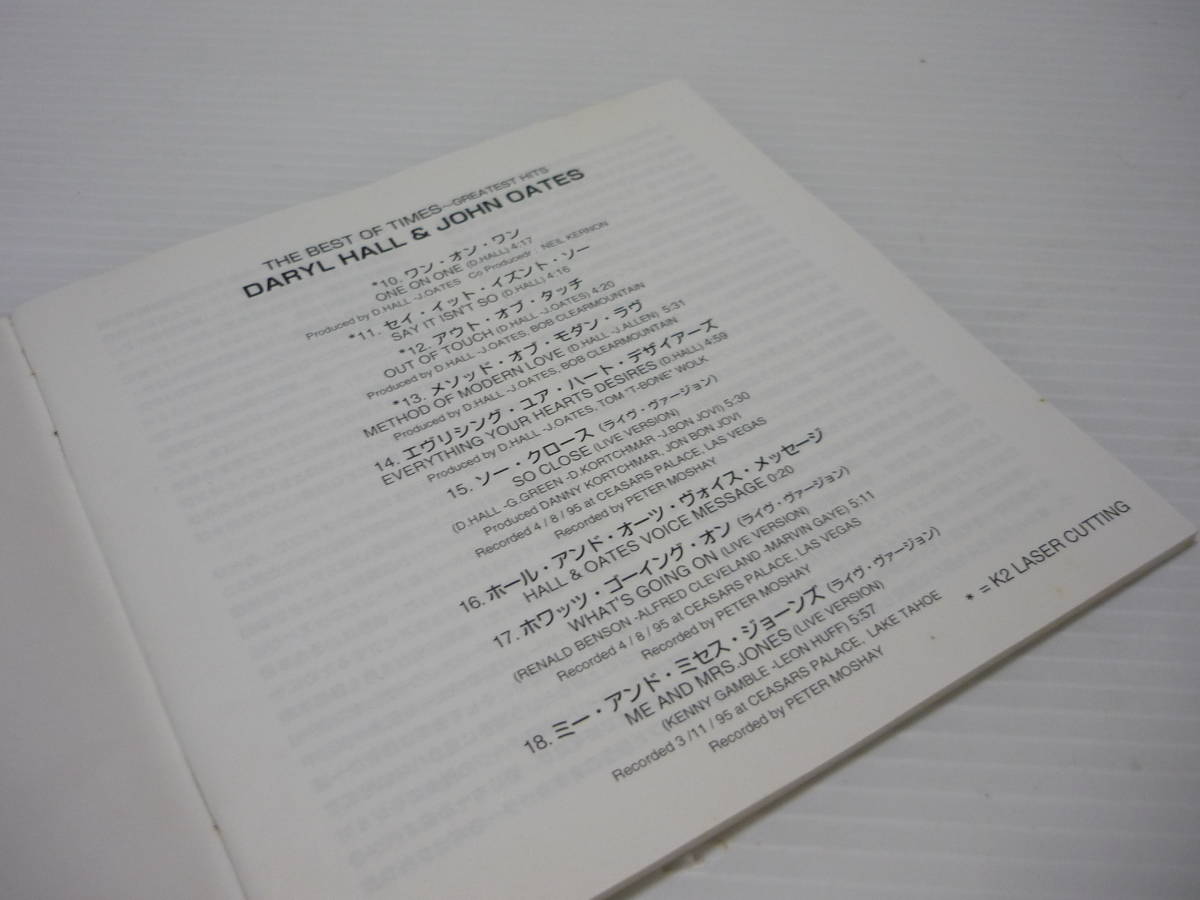 THE BEST OF TIMES~GREATEST HITS
DARYL HALL & JOHN OATES
*10. ワン・オン・ワン
ONE ON ONE (D.HALL) 4:17
Produced by D.HALL -J.OATES Co Producedr : NEIL KERNON
*11. セイ・イット・イズント・ソー
SAY IT ISN'T SO (D.HALL) 4:16
*12. アウト・オブ・タッチ
OUT OF TOUCH (D.HALL -J.OATES) 4:20
Produced by D.HALL -J.OATES, BOB CLEARMOUNTAIN
*13. メソッド・オブ・モダン・ラヴ
METHOD OF MODERN LOVE (D.HALL -J.ALLEN) 5:31
Produced by D.HALL -J.OATES, BOB CLEARMOUNTAIN
14. エヴリシング・ユア・ハート・デザイアーズ
EVERYTHING YOUR HEARTS DESIRES (D.HALL) 4:59
Produced by D.HALL -J.OATES, TOM "T-BONE" WOLK
15. ソー・クロース (ライヴ・ヴァージョン)
SO CLOSE (LIVE VERSION)
(D.HALL -G.GREEN -D.KORTCHMAR -J.BON JOVI) 5:30
Produced DANNY KORTCHMAR, JON BON JOVI
Recorded 4 / 8 / 95 at CEASARS PALACE, LAS VEGAS
Recorded by PETER MOSHAY
16. ホール・アンド・オーツ・ヴォイス・メッセージ
HALL & OATES VOICE MESSAGE 0:20
17. ホワッツ・ゴーイング・オン (ライヴ・ヴァージョン)
WHAT'S GOING ON (LIVE VERSION)
(RENALD BENSON -ALFRED CLEVELAND -MARVIN GAYE) 5:11
Recorded 4 / 8 / 95 at CEASARS PALACE, LAS VEGAS
Recorded by PETER MOSHAY
18. ミー・アンド・ミセス・ジョーンズ (ライヴ・ヴァージョン)
ME AND MRS.JONES (LIVE VERSION)
(KENNY GAMBLE -LEON HUFF) 5:57
Recorded 3 /11 / 95 at CEASARS PALACE, LAKE TAHOE
Recorded by PETER MOSHAY
* = K2 LASER CUTTING